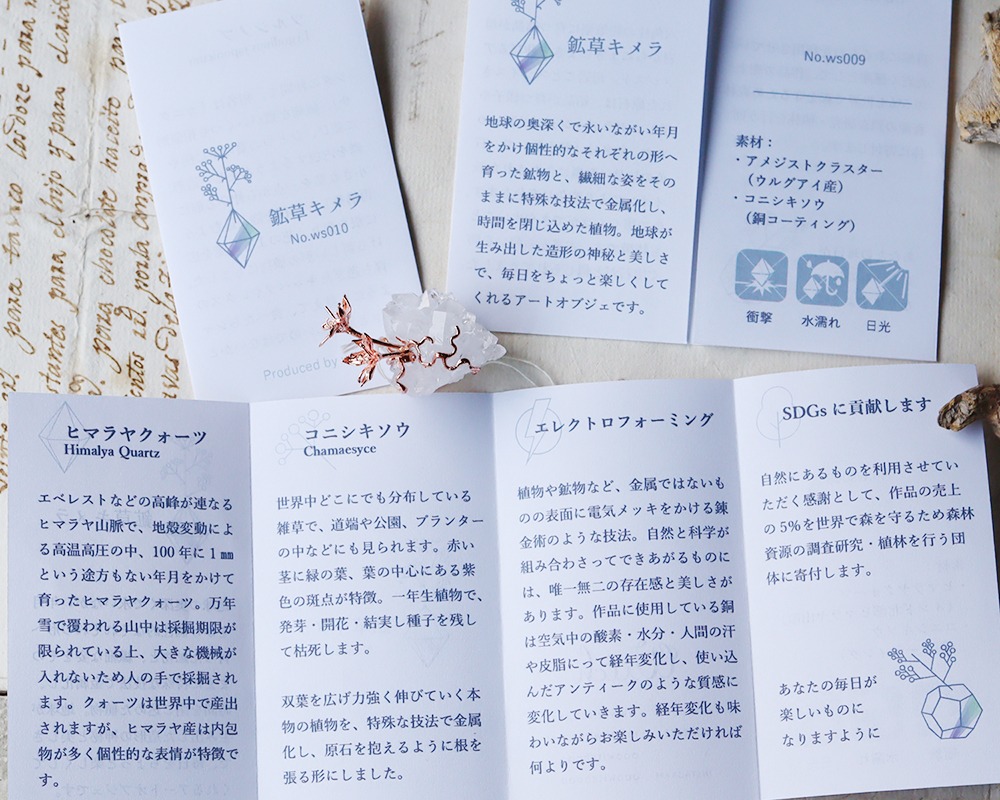 鉱草キメラ
No.ws010
Produced by
鉱草キメラ
地球の奥深くで永いながい年月
をかけ個性的なそれぞれの形へ
育った鉱物と、繊細な姿をその
ままに特殊な技法で金属化し、
時間を閉じ込めた植物。地球が
生み出した造形の神秘と美しさ
で、毎日をちょっと楽しくして
くれるアートオブジェです。
No.ws009
素材：
・アメジストクラスター
（ウルグアイ産）
・コニシキソウ
（銅コーティング）
衝撃
水濡れ
日光
ヒマラヤクォーツ
Himalya Quartz
エベレストなどの高峰が連なる
ヒマラヤ山脈で、地殻変動によ
る高温高圧の中、100年に1㎜
という途方もない年月をかけて
育ったヒマラヤクォーツ。万年
雪で覆われる山中は採掘期限が
限られている上、大きな機械が
入れないため人の手で採掘され
ます。クォーツは世界中で産出
されますが、ヒマラヤ産は内包
物が多く個性的な表情が特徴で
す。
コニシキソウ
Chamaesyce
世界中どこにでも分布している
雑草で、道端や公園、プランター
の中などにも見られます。赤い
茎に緑の葉、葉の中心にある紫
色の斑点が特徴。一年生植物で、
発芽・開花・結実し種子を残し
て枯死します。
双葉を広げ力強く伸びていく本
物の植物を、特殊な技法で金属
化し、原石を抱えるように根を
張る形にしました。
エレクトロフォーミング
植物や鉱物など、金属ではないも
のの表面に電気メッキをかける錬
金術のような技法。自然と科学が
組み合わさってできあがるものに
は、唯一無二の存在感と美しさが
あります。作品に使用している銅
は空気中の酸素・水分・人間の汗
や皮脂にって経年変化し、使い込
んだアンティークのような質感に
変化していきます。経年変化も味
わいながらお楽しみいただければ
何よりです。
SDGsに貢献します
自然にあるものを利用させてい
ただく感謝として、作品の売上
の5%を世界で森を守るため森林
資源の調査研究・植林を行う団
体に寄付します。
あなたの毎日が
楽しいものに
なりますように